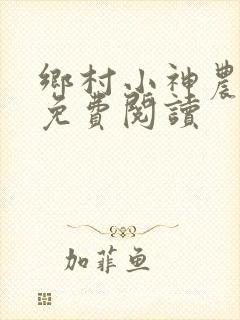 鄉村小神農
免費閱讀
加菲魚